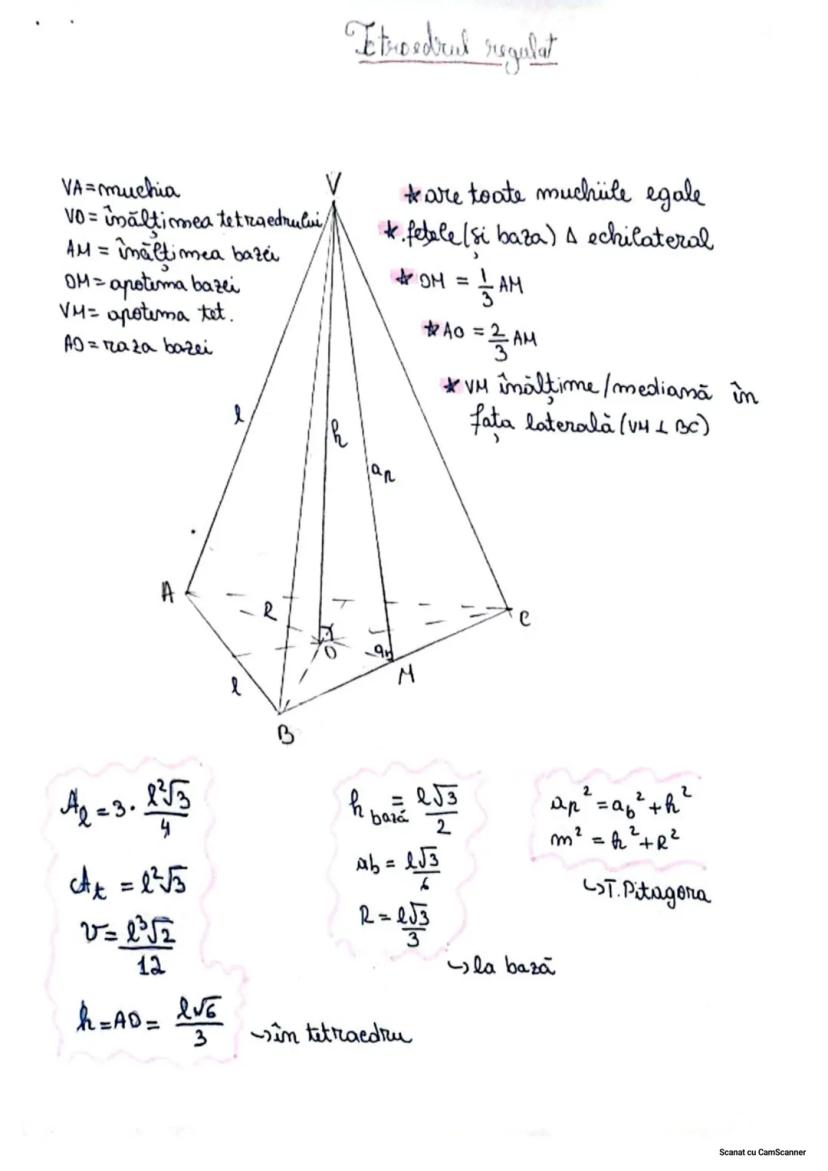 Tetraedrul regulat
VA = muchia
VO = înălțimea tetraedrului
AM = înălțimea bazei
OM = apotema bazei
VM = apotema tet.
AO = raza bazei
V
* are toate muchiile egale
* fețele (și baza) Δ echilateral
* OM = 1/3 AM
* AO = 2/3 AM
* VM înălțime/mediană în
fața laterală (VM ⊥ BC)
l
h
ap
A
R
O
ab
C
M
l
B
Al = 3 · l²√3/4
At = l²√3
V = l³√2/12
h = AO = l√6/3 ↳ în tetraedru
h bază = l√3/2
ab = l√3/6
R = l√3/3
↳ la bază
ap² = ab² + h²
m² = h² + R²
↳ T. Pitagora
Scanat cu CamScanner